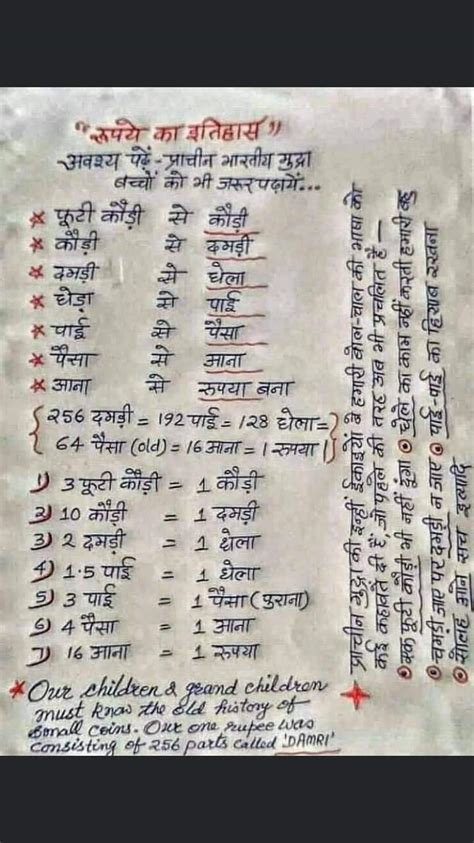 "रूपये का इतिहास"
अवश्य पढ़ें - प्राचीन भारतीय मुद्रा
बच्चों को भी जरूर पढ़ायें...
* फूटी कौड़ी से कौड़ी
* कौड़ी से दमड़ी
* दमड़ी से धेला
* धेड़ा से पाई
* पाई से पैसा
* पैसा से आना
* आना से रुपया बना
{256 दमड़ी = 192 पाई = 128 धेला =
64 पैसा (old) = 16 आना = 1 रुपया}
1) 3 फूटी कौड़ी = 1 कौड़ी
2) 10 कौड़ी = 1 दमड़ी
3) 2 दमड़ी = 1 धेला
4) 1.5 पाई = 1 धेला
5) 3 पाई = 1 पैसा (पुराना)
6) 4 पैसा = 1 आना
7) 16 आना = 1 रुपया
* Our children & grand children
must know the old history of
small coins. Our one rupee was
consisting of 256 parts called 'DAMRI'
प्राचीन मुद्रा की इन्हीं ईकाइयों ने हमारी बोल-चाल की भाषा को
कई कहावतें दी हैं, जो पहले की तरह अब भी प्रचलित हैं -
एक फूटी कौड़ी भी नहीं दूंगा धेले का काम नहीं करती हमारी बहू
चमड़ी जाए पर दमड़ी न जाए पाई-पाई का हिसाब रखना
सोलह आने सच इत्यादि